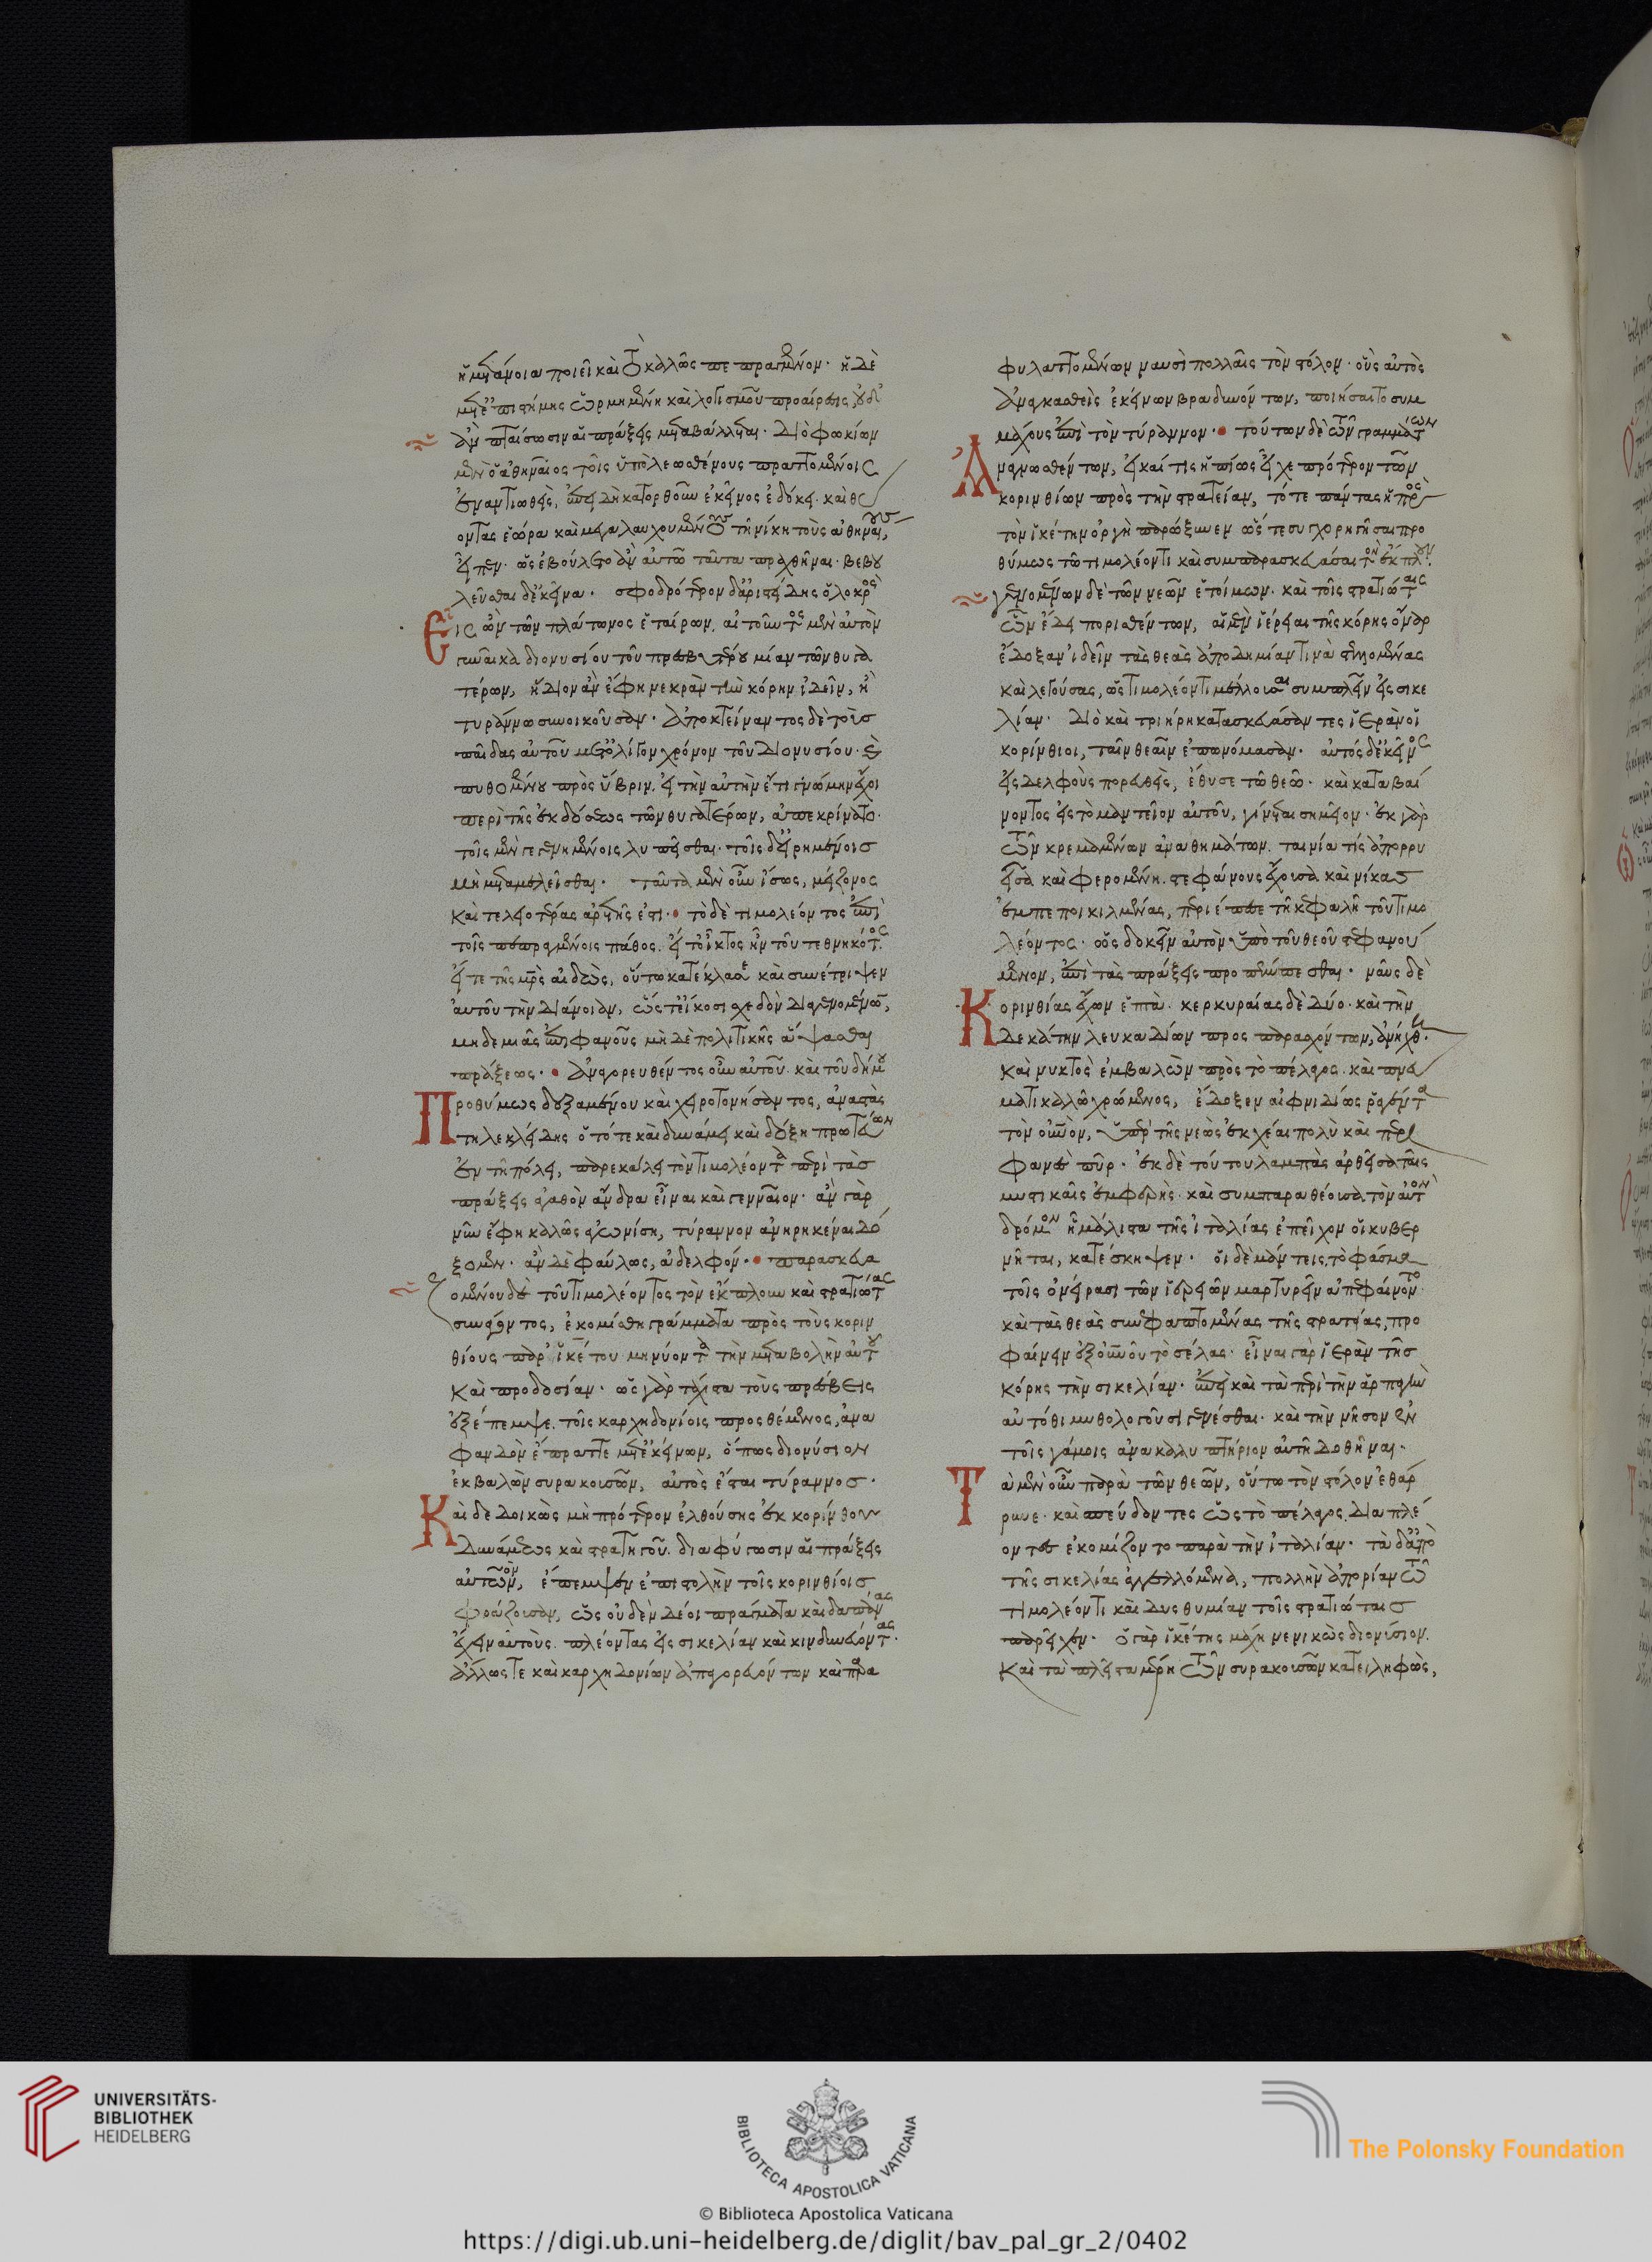 ἡ μετάνοια ποιεῖ καὶ τὸ καλῶς πεπραγμένον· ἡ δὲ
μετ' ἐπιστήμης ὡρμημένη καὶ λογισμοῦ προαίρεσις, οὐδ'
ἂν πταίσωσιν αἱ πράξεις μεταβάλλεται. Διὸ φωκίων
μὲν ὁ ἀθηναῖος τοῖς ὑπὸ λεωσθένους πραττομένοις
ἐναντιωθεὶς, ἐπεὶ δὴ κατορθοῦν ἐκεῖνος ἐδόκει. καὶ θύ
οντας ἑώρα καὶ μεγαλαυχουμένους τῆ νίκη τοὺς ἀθηναίους,
εἶπεν. ὡς ἐβούλετο ἂν αὐτῶ ταῦτα πραχθῆναι. βεβου
λεῦσθαι δ' ἐκεῖνα. σφοδρότερον δ' ἀριστείδης ὁ λοκρὸς
εἷς ὢν τῶν πλάτωνος ἑταίρων. αἰτοῦντος μὲν αὐτὸν
γυναῖκα διονυσίου τοῦ πρεσβυτέρου μίαν τῶν θυγα
τέρων, ἥδιον ἂν ἔφη νεκρὰν τὴν κόρην ἰδεῖν, ἢ
τυράννω συνοικοῦσαν. ἀποκτείναντος δὲ τοὺς
παῖδας αὐτοῦ μετ' ὀλίγον χρόνον τοῦ Διονυσίου. καὶ
πυθομένου πρὸς ὕβριν. εἰ τὴν αὐτὴν ἔτι γνώμην ἔχοι
περὶ τῆς ἐκδόσεως τῶν θυγατέρων, ἀπεκρίνατο.
τοῖς μὲν γεγενημένοις λυπεῖσθαι. τοῖς δ' εἰρημένοις
μὴ μεταμελεῖσθαι. ταῦτα μὲν οὖν ἴσως, μείζονος
καὶ τελειοτέρας ἀρετῆς ἐστι. τὸ δὲ τιμολέοντος ἐπὶ
τοῖς πεπραγμένοις πάθος. εἴτ' οἶκτος ἦν τοῦ τεθνηκότος.
εἴτε τῆς μητρὸς αἰδὼς, οὕτω κατέκλασε καὶ συνέτριψεν
αὐτοῦ τὴν διάνοιαν, ὥστ' εἴκοσι σχεδὸν διαγενομένων,
μηδεμιᾶς ἐπιφανοῦς μὴ δὲ πολιτικῆς ἅψασθαι
πράξεως. ἀναγορευθέντος οὖν αὐτοῦ. καὶ τοῦ δήμου
προθύμως δεξαμένου καὶ χειροτονήσαντος, ἀναστὰς
τηλεκλείδης ὁ τότε καὶ δυνάμει καὶ δόξη πρωτεύων
ἐν τῆ πόλει, παρεκάλει τὸν τιμολέοντα περὶ τὰς
πράξεις ἀγαθὸν ἄνδρα εἶναι καὶ γενναῖον. ἂν γὰρ
νῦν ἔφη καλῶς ἀγωνίση, τύραννον ἀνηρηκέναι δό
ξομεν. ἂν δὲ φαύλως, ἀδελφόν. παρασκευα
ζομένου δὲ τοῦ τιμολέοντος τὸν ἔκπλουν καὶ στρατιώτας
συνάγοντος, ἐκομίσθη γράμματα πρὸς τοὺς κοριν
θίους παρ' ἱκέτου μηνύοντα τὴν μεταβολὴν αὐτοῦ
καὶ προδοσίαν. ὡς γὰρ τάχιστα τοὺς πρέσβεις
ἐξέπεμψε. τοῖς καρχηδονίοις προσθέμενος, ἀνα
φανδὸν ἔπραττε μετ' ἐκείνων, ὅπως διονύσιον
ἐκβαλὼν συρακουσῶν, αὐτὸς ἔσται τύραννος.
Καὶ δεδοικὼς μὴ πρότερον ἐλθούσης ἐκ κορίνθου
δυνάμεως καὶ στρατηγοῦ. διαφύγωσιν αἱ πράξεις
αὐτὸν, ἔπεμψεν ἐπιστολὴν τοῖς κορινθίοις
φράζουσαν, ὡς οὐδὲν δέοι πράγματα καὶ δαπάνας
ἔχειν αὐτοὺς. πλέοντας εἰς σικελίαν καὶ κινδυνεύοντας.
ἄλλως τε καὶ καρχηδονίων ἀπαγορευόντων καὶ παρα
φυλαττομένων ναυσὶ πολλαῖς τὸν στόλον. οὓς αὐτὸς
ἀναγκασθεὶς ἐκείνων βραδυνόντων, ποιήσαιτο συμ
μάχους ἐπὶ τὸν τύραννον. τούτων δὲ τῶν γραμμάτων
ἀναγνωσθέντων, εἰ καί τις ἠπίως εἶχε πρότερον τῶν
κορινθίων πρὸς τὴν στρατείαν, τότε πάντας ἡ πρὸς
τὸν ἱκέτην ὀργὴ παρώξυνεν ὥστε συγχορηγῆσαι προ
θύμως τῶ τιμολέοντι καὶ συμπαρασκευάσαι τὸν ἔκπλουν.
γενομένων δὲ τῶν νεῶν ἑτοίμων. καὶ τοῖς στρατιώταις
ὧν ἔδει πορισθέντων, αἱ μὲν ἱέρειαι τῆς κόρης ὄναρ
ἔδοξαν ἰδεῖν τὰς θεὰς ἀποδημίαν τινὰ στελλομένας
καὶ λεγούσας, ὡς τιμολέοντι μέλλουσαι συμπλεῖν εἰς σικε
λίαν. Διὸ καὶ τριήρη κατασκευάσαντες ἱερὰν οἱ
κορίνθιοι, ταῖν θεαῖν ἐπωνόμασαν. αὐτὸς δ' ἐκεῖνος
εἰς δελφοὺς πορευθεὶς, ἔθυσε τῶ θεῶ. καὶ καταβαί
νοντος εἰς τὸ μαντεῖον αὐτοῦ, γίνεται σημεῖον. ἐκ γὰρ
τῶν κρεμαμένων ἀναθημάτων. ταινία τίς ἀπορρυ
εῖσα καὶ φερομένη. στεφάνους ἔχουσα καὶ νίκας
ἐμπεποικιλμένας, περιέπεσε τῆ κεφαλῆ τοῦ τιμο
λέοντος. ὡς δοκεῖν αὐτὸν ὑπὸ τοῦ θεοῦ στεφανού
μενον, ἐπὶ τὰς πράξεις προπέμπεσθαι. ναῦς δὲ
Κορινθίας ἔχων ἑπτὰ. κερκυραίας δὲ δύο. καὶ τὴν
δεκάτην λευκαδίων προσπαρασχόντων, ἀνήχθη.
καὶ νυκτὸς ἐμβαλὼν πρὸς τὸ πέλαγος. καὶ πνεύ
ματι καλῶ χρώμενος, ἔδοξεν αἰφνιδίως ῥαγέντα
τὸν οὐρανὸν, ὑπὲρ τῆς νεὼς ἐκχέαι πολὺ καὶ περι
φανὲς πῦρ. ἐκ δὲ τούτου λαμπὰς ἀρθεῖσα ταῖς
μυστικαῖς ἐμφερὴς. καὶ συμπαραθέουσα τὸν αὐτὸν
δρόμον ἧ μάλιστα τῆς ἰταλίας ἐπεῖχον οἱ κυβερ
νῆται, κατέσκηψεν. οἱ δὲ μάντεις, τὸ φάσμα
τοῖς ὀνείρασι τῶν ἱερειῶν μαρτυρεῖν ἀπεφαίνοντο
καὶ τὰς θεὰς συνεφαπτομένας τῆς στρατείας, προ
φαίνειν ἐξ οὐρανοῦ τὸ σέλας. εἶναι γὰρ ἱερὰν τῆς
κόρης τὴν σικελίαν. ἐπεὶ καὶ τὰ περὶ τὴν ἁρπαγὴν
αὐτόθι μυθολογοῦσι γενέσθαι. καὶ τὴν νῆσον ἐν
τοῖς γάμοις ἀνακαλυπτήριον αὐτῆ δοθῆναι.
Τὰ μὲν οὖν παρὰ τῶν θεῶν, οὕτω τὸν στόλον ἐθάρ
ρυνε. καὶ σπεύδοντες ὡς τὸ πέλαγος. διαπλέ
οντες ἐκομίζοντο παρὰ τὴν ἰταλίαν. τὰ δ' ἀπὸ
τῆς σικελίας ἀγγελλόμενα, πολλὴν ἀπορίαν τῶ
τιμολέοντι καὶ δυσθυμίαν τοῖς στρατιώταις
παρεῖχεν. ὁ γὰρ ἱκέτης μάχη νενικηκὼς διονύσιον.
Καὶ τὰ πλεῖστα μέρη τῶν συρακουσῶν κατειληφὼς,
UNIVERSITÄTS-
BIBLIOTHEK
HEIDELBERG
BIBLIOTECA APOSTOLICA VATICANA
The Polonsky Foundation
© Biblioteca Apostolica Vaticana
https://digi.ub.uni-heidelberg.de/diglit/bav_pal_gr_2/0402